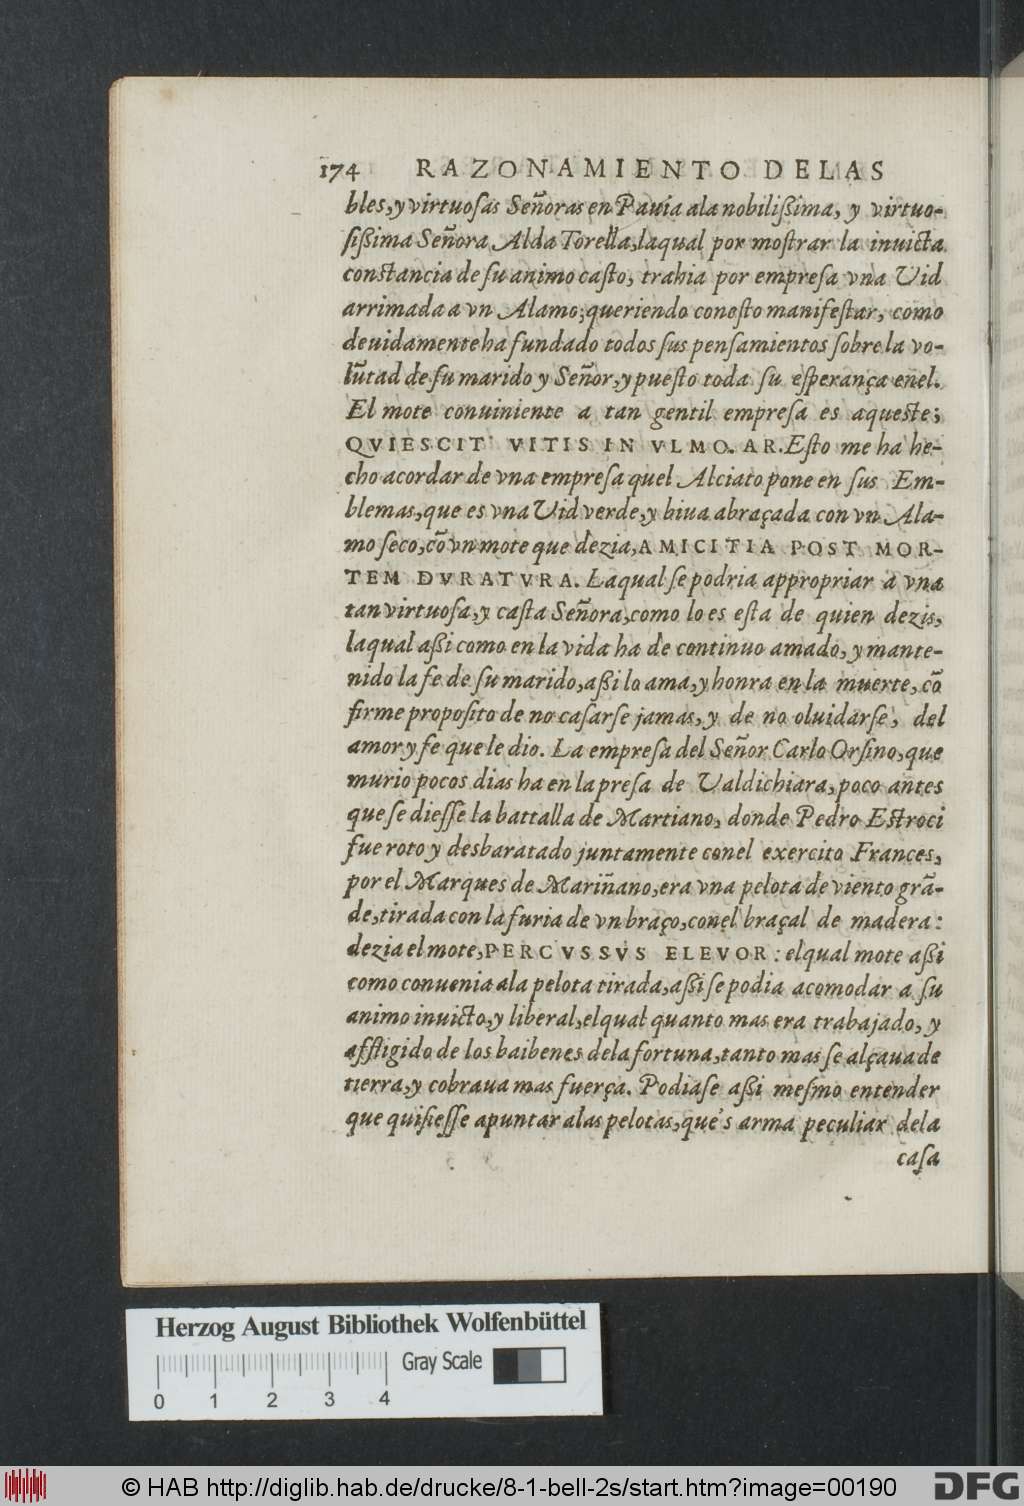 174 RAZONAMIENTO DELAS
bles, y virtuoſas Señoras en Pauia ala nobiliſsima, y virtuo-
ſiſsima Señora Alda Torella, laqual por moſtrar la inuicta
conſtancia de ſu animo caſto, trahia por empreſa vna Vid
arrimada a vn Alamo; queriendo coneſto manifeſtar, como
deuidamente ha fundado todos sus penſamientos ſobre la vo-
lũtad de ſu marido y Señor, y pueſto toda ſu eſperança enel.
El mote conuiniente a tan gentil empreſa es aqueſte;
QVIESCIT VITIS IN VLMO. AR. Eſto me ha he-
cho acordar de vna empreſa quel Alciato pone en ſus Em-
blemas, que es vna Vid verde, y biua abraçada con vn Ala-
mo ſeco, cõ vn mote que dezia, AMICITIA POST MOR-
TEM DVRATVRA. Laqual ſe podria appropriar a vna
tan virtuoſa, y caſta Señora, como lo es eſta de quien dezis,
laqual aſsi como en la vida ha de continuo amado, y mante-
nido la fe de ſu marido, aſsi lo ama, y honra en la muerte, cõ
firme propoſito de no caſarſe jamas, y de no oluidarſe, del
amor y fe que le dio. La empreſa del Señor Carlo Orſino, que
murio pocos dias ha en la preſa de Valdichiara, poco antes
que ſe dieſſe la battalla de Martiano, donde Pedro Eſtroci
fue roto y desbaratado juntamente conel exercito Frances,
por el Marques de Mariñano, era vna pelota de viento grã-
de, tirada con la furia de vn braço, conel braçal de madera:
dezia el mote, PERCVSSVS ELEVOR: elqual mote aſsi
como conuenia ala pelota tirada, aſsi ſe podia acomodar a ſu
animo inuicto, y liberal, elqual quanto mas era trabajado, y
affligido de los baibenes dela fortuna, tanto mas ſe alçaua de
tierra, y cobraua mas fuerça. Podiaſe aſsi meſmo entender
que quiſieſſe apuntar alas pelotas, que's arma peculiar dela
caſa
Herzog August Bibliothek Wolfenbüttel
Gray Scale
0 1 2 3 4
© HAB http://diglib.hab.de/drucke/8-1-bell-2s/start.htm?image=00190
DFG